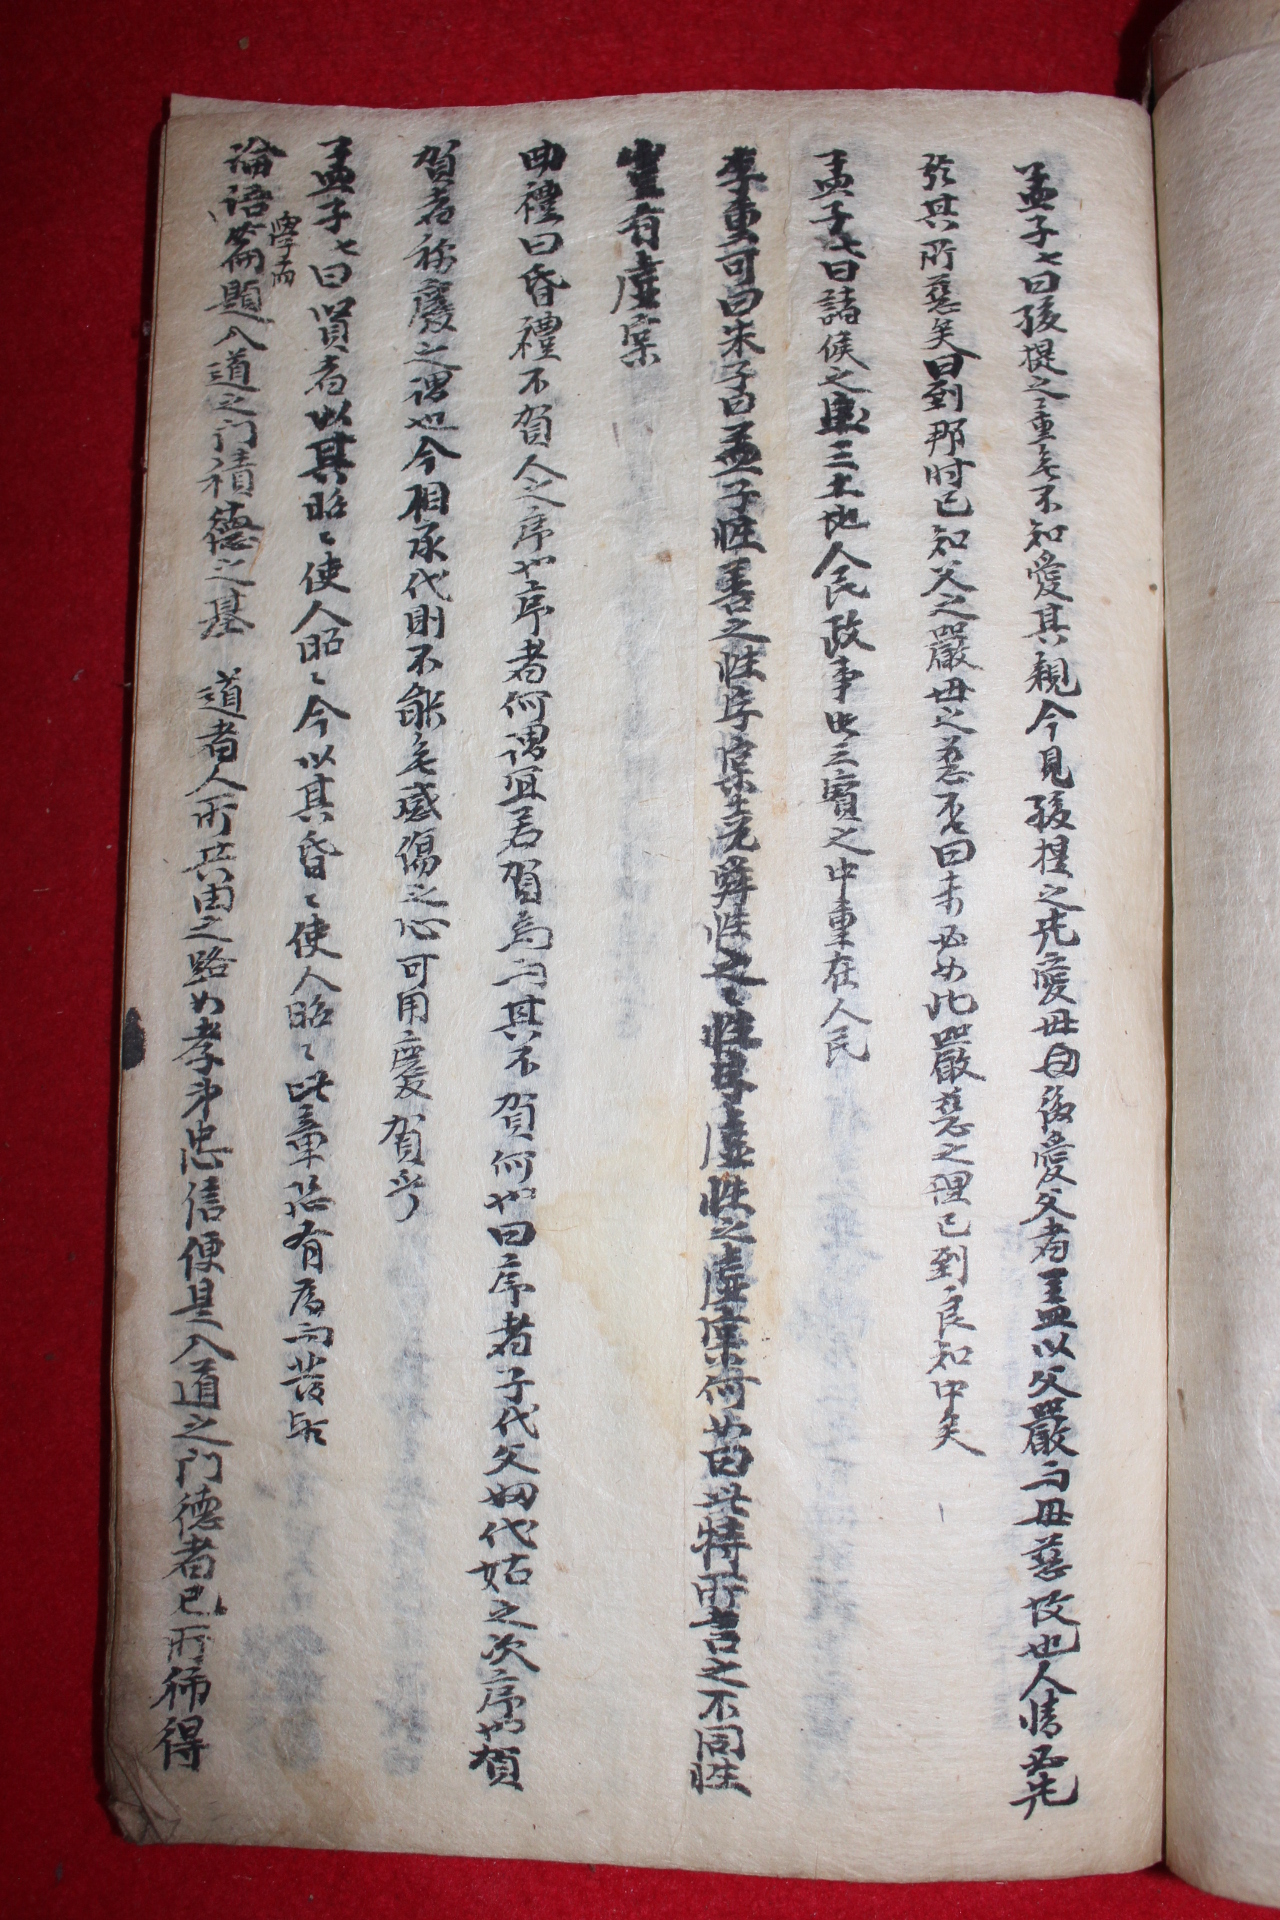 孟子七曰孩提之童無不知愛其親今見孩提之先愛母而後愛父者盖以父嚴而母慈故也人情必先
於其所慈矣曰到那时已知父之嚴母之慈否曰未必如此嚴慈之理已到良知中矣
孟子七曰諸侯之宝三土地人民政事此三宝之中重在人民
李重可曰朱子曰孟子性善之性字実堯舜性之之性字虛性之虛実何如曰此特所言之不同性
豈有虛実
曲禮曰昏禮不賀人之序也序者何謂宜若賀焉而其不賀何也曰序者子代父婦代姑之次序也賀
賀者称慶之謂也今相承代則不能無感傷之心可用慶賀乎
孟子七曰賢者以其昭〻使人昭〻今以其昏〻使人昭〻此章恐有為而發歟
論語学而篇題入道之门積德之基 道者人所共由之路如孝弟忠信便是入道之门德者己所獨得